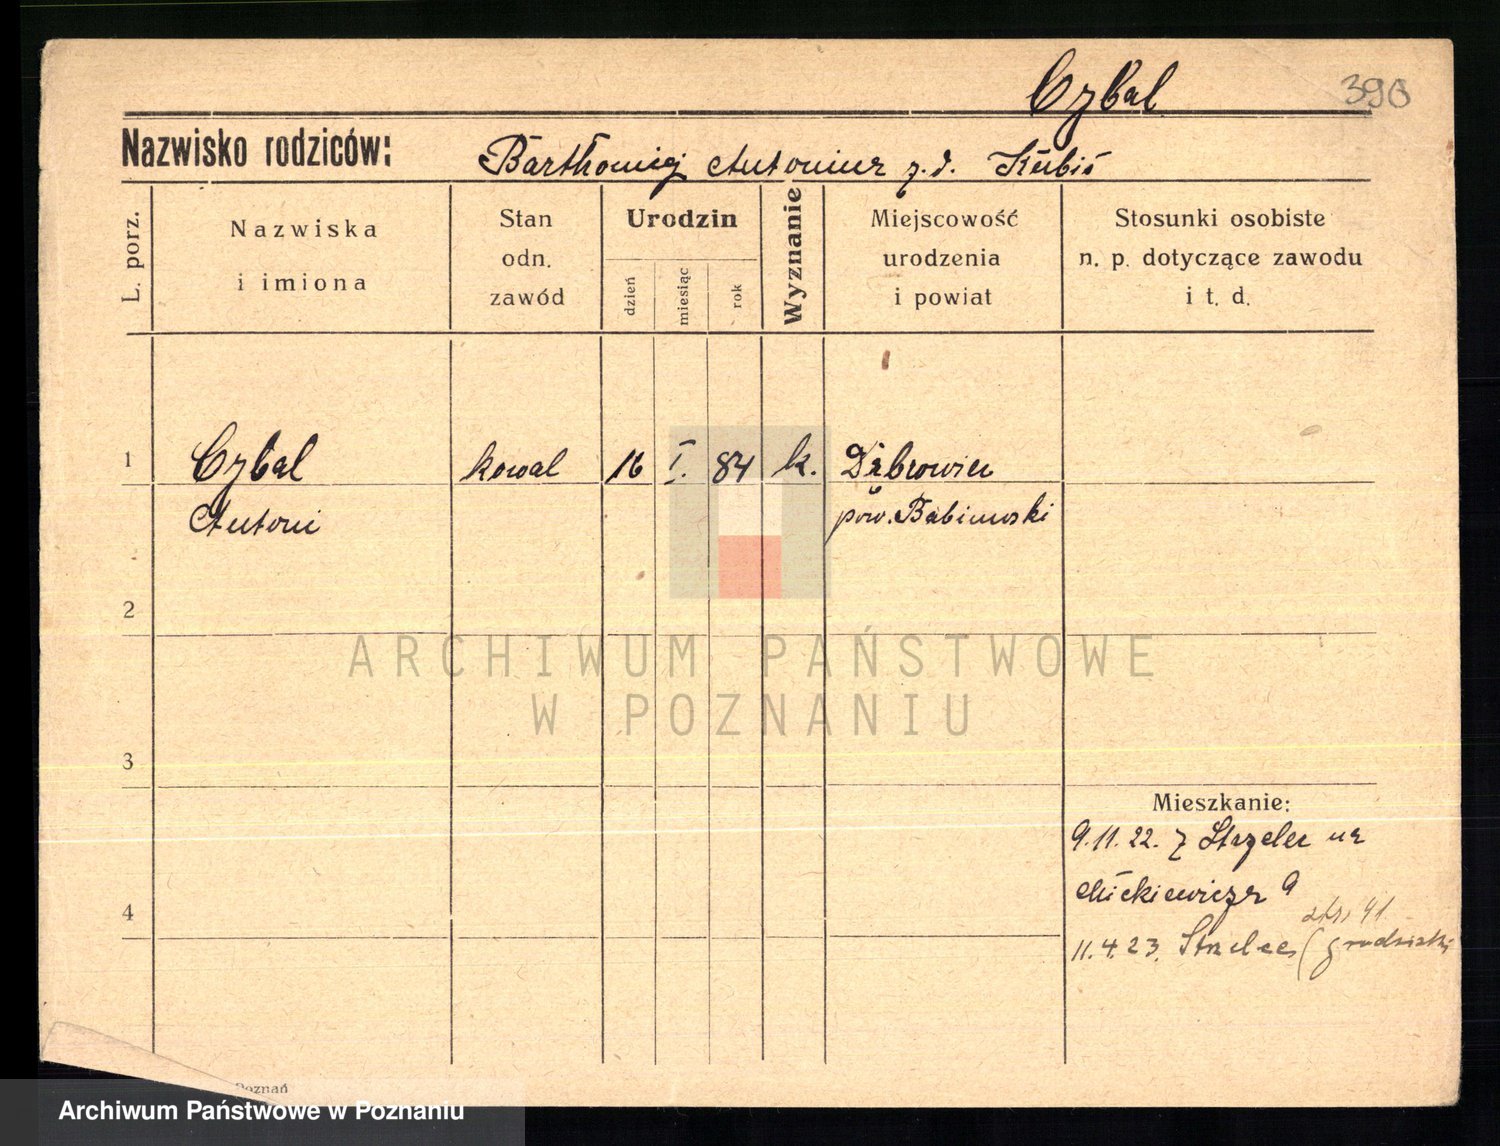 Czbal 390
Nazwisko rodziców: Bartłomiej Antonina z.d. Kubiś
L. porz.
Nazwiska
i imiona
Stan
odn.
zawód
Urodzin
dzień
miesiąc
rok
Wyznanie
Miejscowość
urodzenia
i powiat
Stosunki osobiste
n. p. dotyczące zawodu
i t. d.
1 Czbal kowal 16 I. 84 k. Dąbrowiec
Antoni pow. Babimoski
2
ARCHIWUM PAŃSTWOWE
W POZNANIU
3
Mieszkanie:
9.11.22. z Strzelec na
Mickiewicza 9
4
11.4.23. Strzelce (grodziski
Poznań
Archiwum Państwowe w Poznaniu